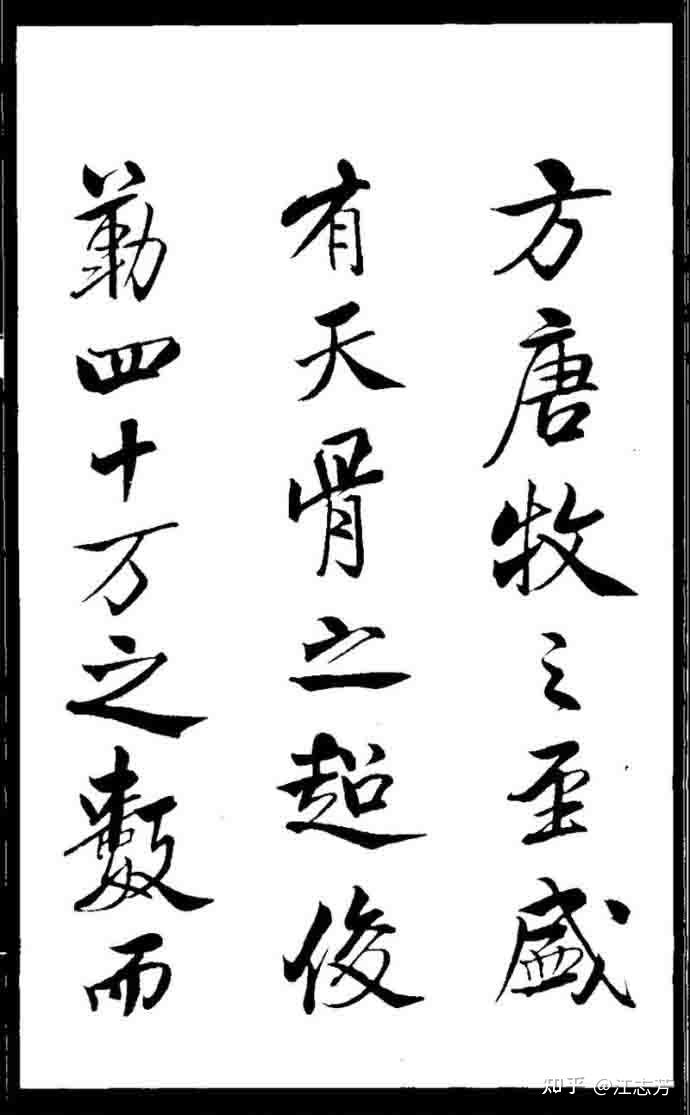 方唐牧之至盛
有天骨之超俊
勒四十万之數而
知乎 @江志芳